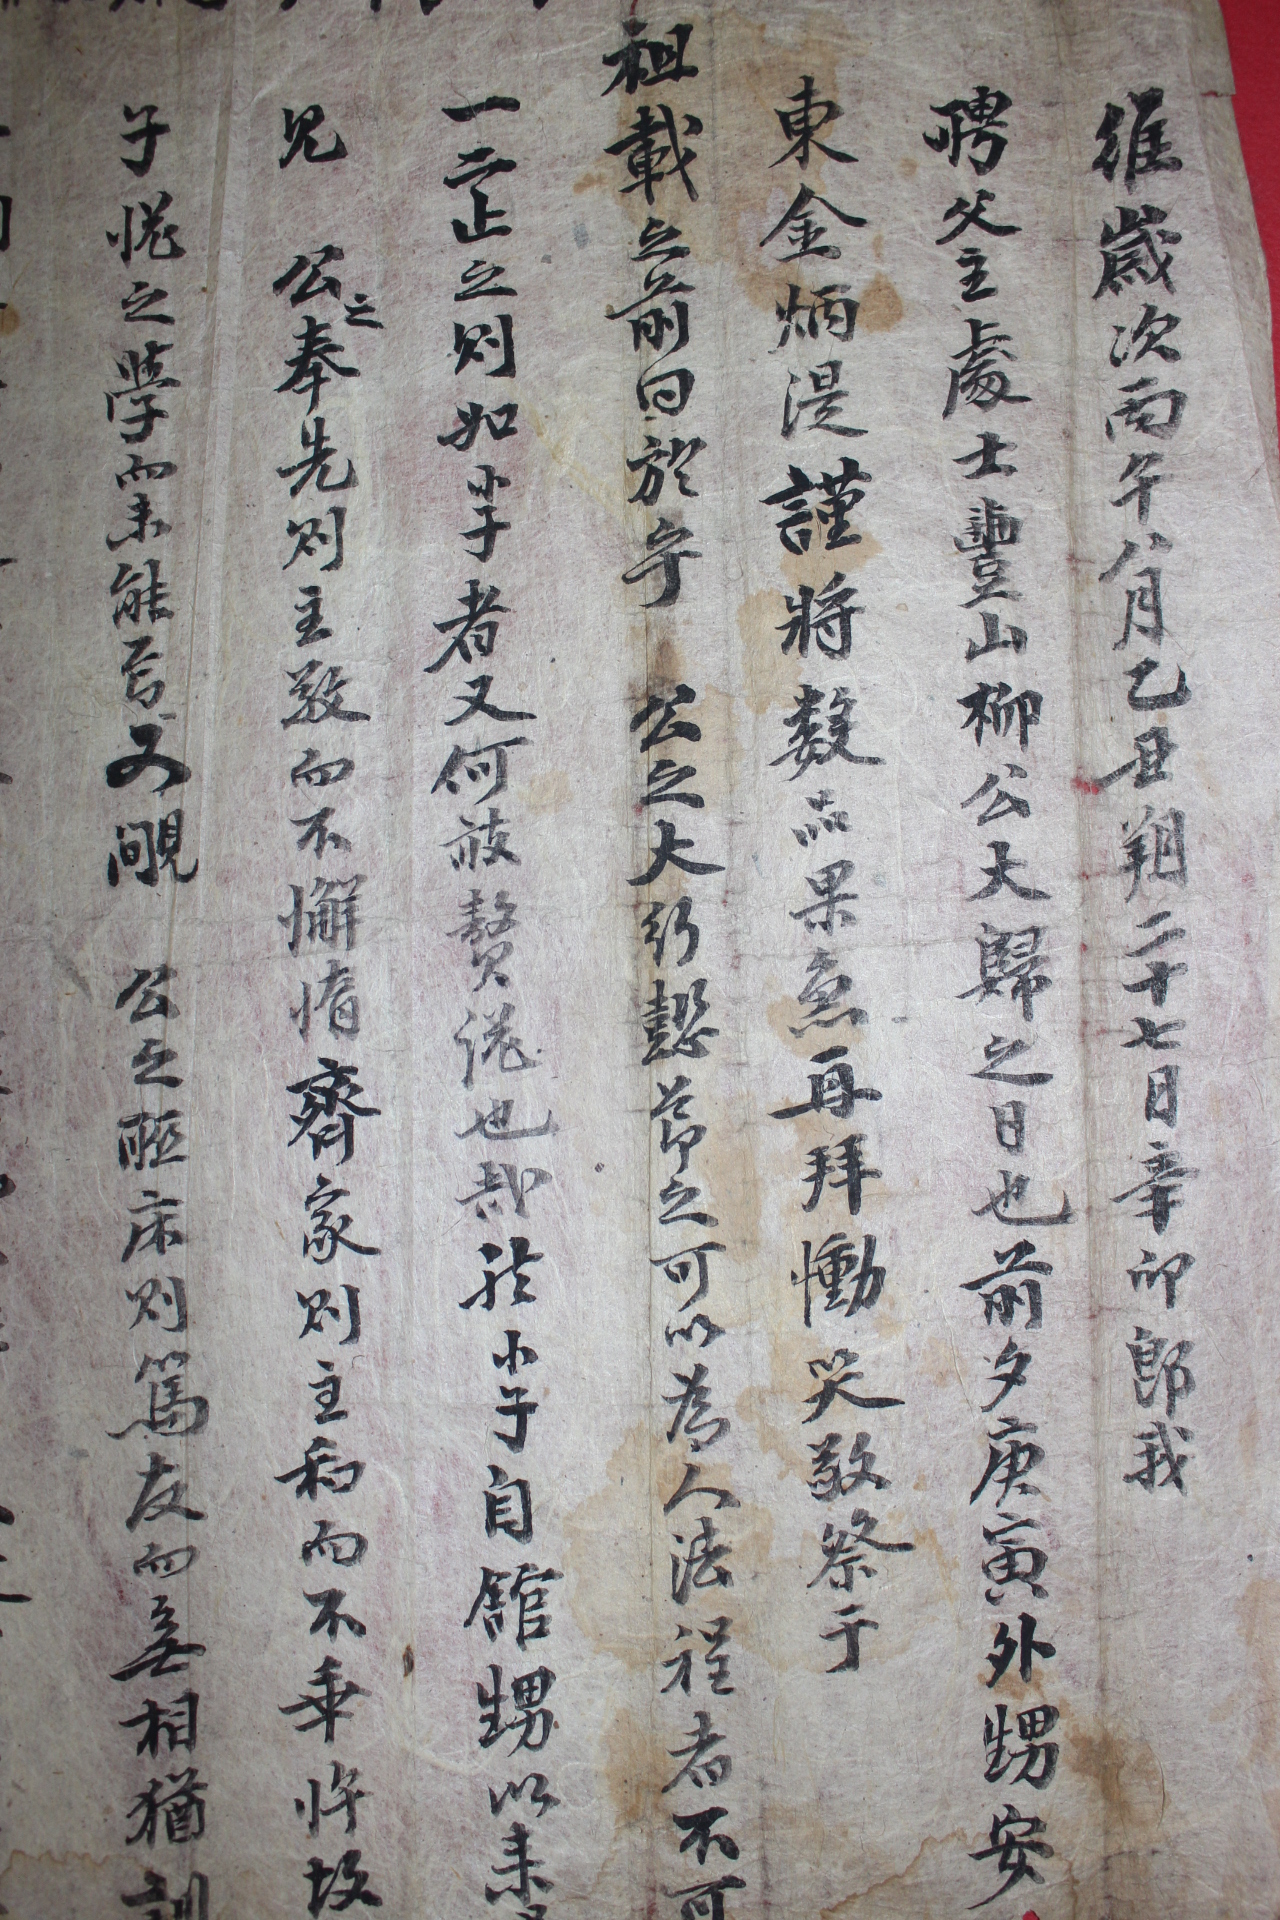 維歲次丙午八月乙丑朔二十七日辛卯卽我
聘父主處士豊山柳公大歸之日也前夕庚寅外甥安
東金炳湜謹將数品果魚再拜慟哭敬祭于
祖載之前曰於乎 公之大行懿節之可以爲人法程者不可
一二止之則如小子者又何敢贅說也哉於小子自館甥以來
見 公之奉先則主敬而不懈惰齊家則主和而不乖忤故
子悅之學而未能焉又覸 公之聯床則篤友而無相猶訓